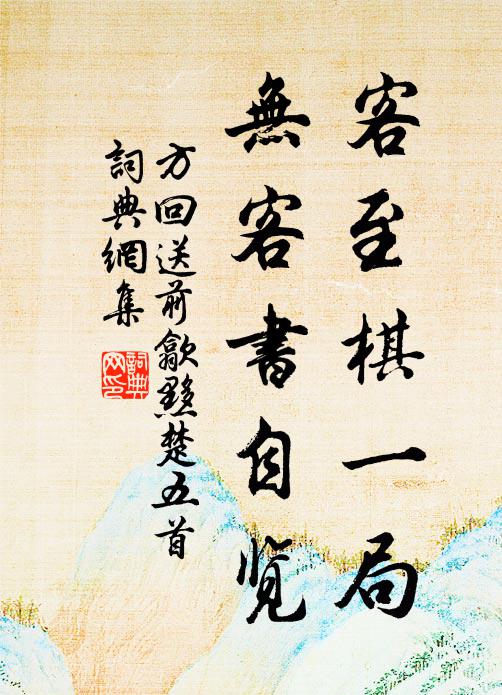 客至棋一局
無客書自覽
方回送前歙黟楚五首
詞典網集
詞典網印